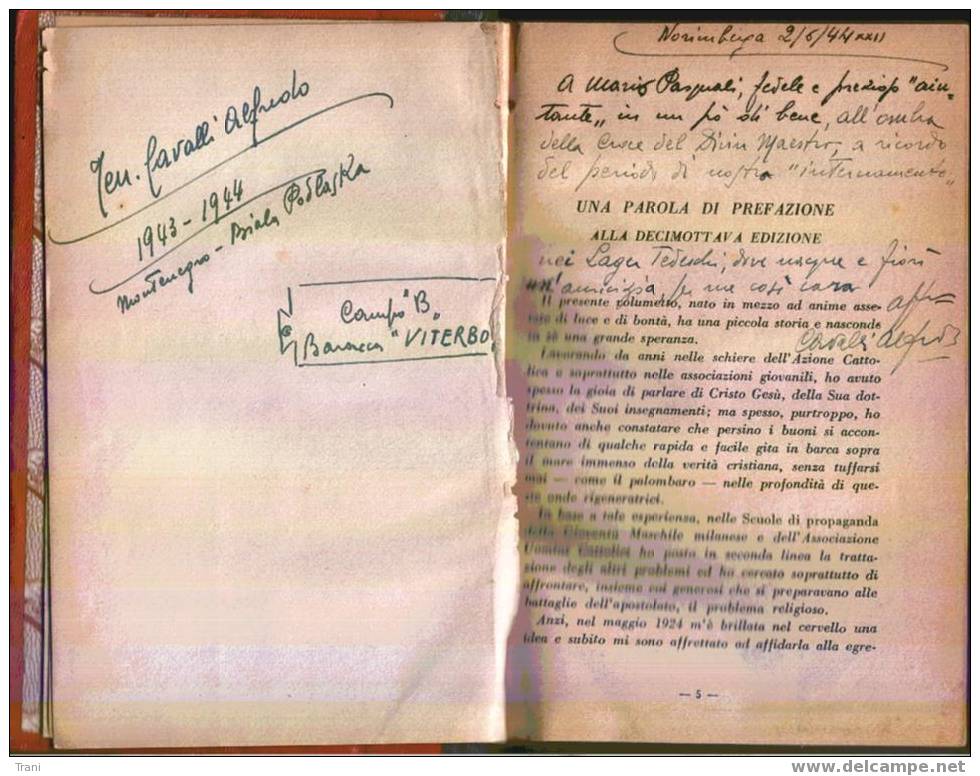 Ten. Cavalli Alfredo
1943-1944
Montenegro - Biala Podlaska
Campo "B"
Baracca "VITERBO
Norimberga 2/6/44 XXII
A Mario Pasquali, fedele e prezioso "aiu-
tante" in un pò di bene, all'ombra
della Croce del Divin Maestro, a ricordo
del periodo di nostro "internamento"
UNA PAROLA DI PREFAZIONE
ALLA DECIMOTTAVA EDIZIONE
nei Lager Tedeschi, dove nacque e fiorì
un'amicizia, per me così cara
aff.mo
Cavalli Alfredo
Il presente volumetto, nato in mezzo ad anime asse-
tate di luce e di bontà, ha una piccola storia e nasconde
in sè una grande speranza.
Lavorando da anni nelle schiere dell'Azione Catto-
lica e soprattutto nelle associazioni giovanili, ho avuto
spesso la gioia di parlare di Cristo Gesù, della Sua dot-
trina, dei Suoi insegnamenti; ma spesso, purtroppo, ho
dovuto anche constatare che persino i buoni si accon-
tentano di qualche rapida e facile gita in barca sopra
il mare immenso della verità cristiana, senza tuffarsi
mai — come il palombaro — nelle profondità di que-
ste onde rigeneratrici.
In base a tale esperienza, nelle Scuole di propaganda
della Gioventù Maschile milanese e dell'Associazione
Uomini Cattolici ho posto in seconda linea la tratta-
zione degli altri problemi ed ho cercato soprattutto di
affrontare, insieme coi generosi che si preparavano alle
battaglie dell'apostolato, il problema religioso.
Anzi, nel maggio 1924 m'è brillata nel cervello una
idea e subito mi sono affrettato ad affidarla alla egre-
— 5 —
Trani
www.delcampe.net